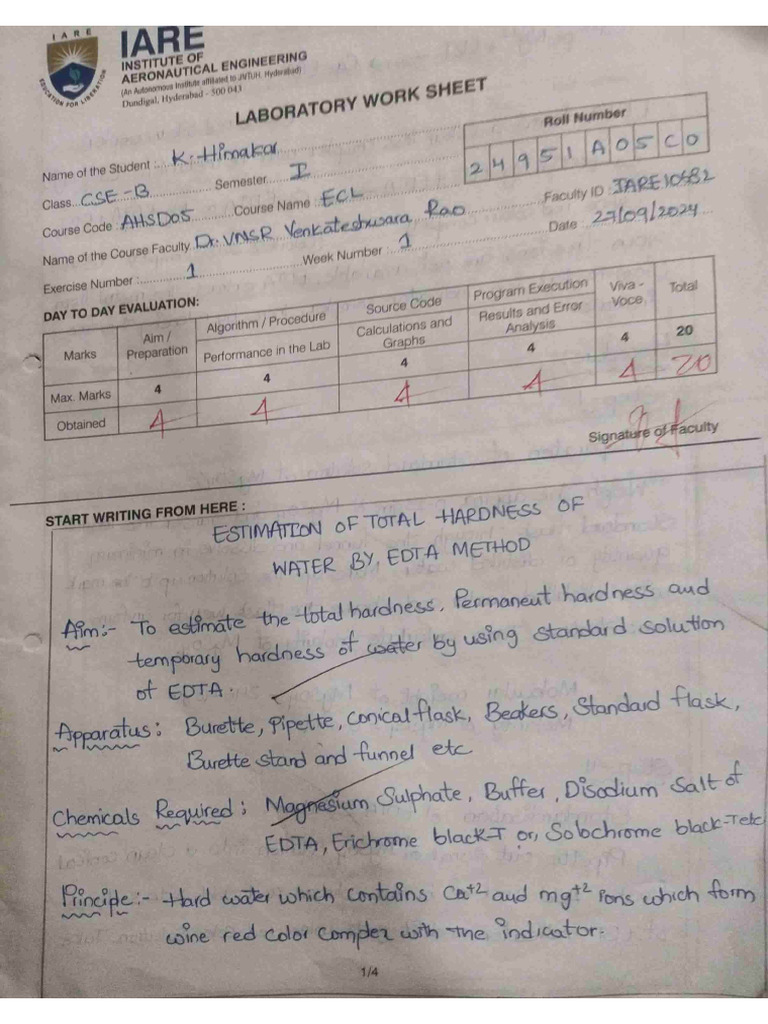 IARE
IARE
INSTITUTE OF
AERONAUTICAL ENGINEERING
(An Autonomous Institute affiliated to JNTUH, Hyderabad)
Dundigal, Hyderabad - 500 043
EDUCATION FOR LIBERATION
LABORATORY WORK SHEET
Name of the Student : K. Himakar
Roll Number
24951A05C0
Class CSE-B Semester I
Course Code : AHSD05 Course Name : ECL Faculty ID : IARE10482
Name of the Course Faculty Dr. VNSR Venkateshwara Rao Date : 27/09/2024
Exercise Number : 1 Week Number : 1
DAY TO DAY EVALUATION:
Marks Aim / Preparation Algorithm / Procedure Source Code Program Execution Viva - Voce Total
Performance in the Lab Calculations and Graphs Results and Error Analysis
Max. Marks 4 4 4 4 4 20
Obtained 4 4 4 4 4 20
Signature of Faculty
START WRITING FROM HERE :
ESTIMATION OF TOTAL HARDNESS OF
WATER BY, EDTA METHOD
Aim:- To estimate the total hardness, Permanent hardness and
temporary hardness of water by using standard solution
of EDTA.
Apparatus: Burette, Pipette, conical flask, Beakers, Standard flask,
Burette stand and funnel etc
Chemicals Required: Magnesium Sulphate, Buffer, Disodium Salt of
EDTA, Erichrome black-T or, Solochrome black-T etc
Principle:- Hard water which contains Ca+2 and mg+2 ions which form
wine red color complex with the indicator.
1/4